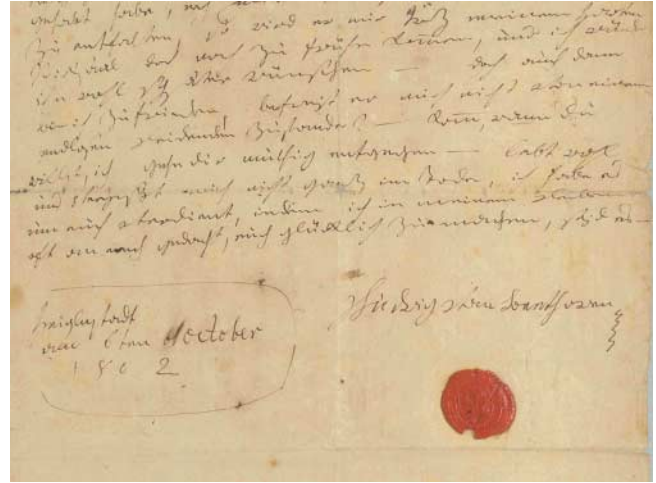 gehabt habe, noch
zu entfalten, so wird er mir trotz meinem harten
Schicksaal doch noch zu frühe kommen, und ich würde
ihn wohl später wünschen — doch auch dann
bin ich zufrieden, befreyt er mich nicht von einem
endlosen leidenden Zustande? — Komm, wann du
willst, ich gehe dir muthig entgegen — lebt wohl
und Vergeßt mich nicht ganz im Tode, ich habe es
um euch verdient, indem ich in meinem Leben
oft an euch gedacht, euch glücklich zu machen, seyd es —
Heiglnstadt
am 6ten october
1802
Ludwig van Beethoven